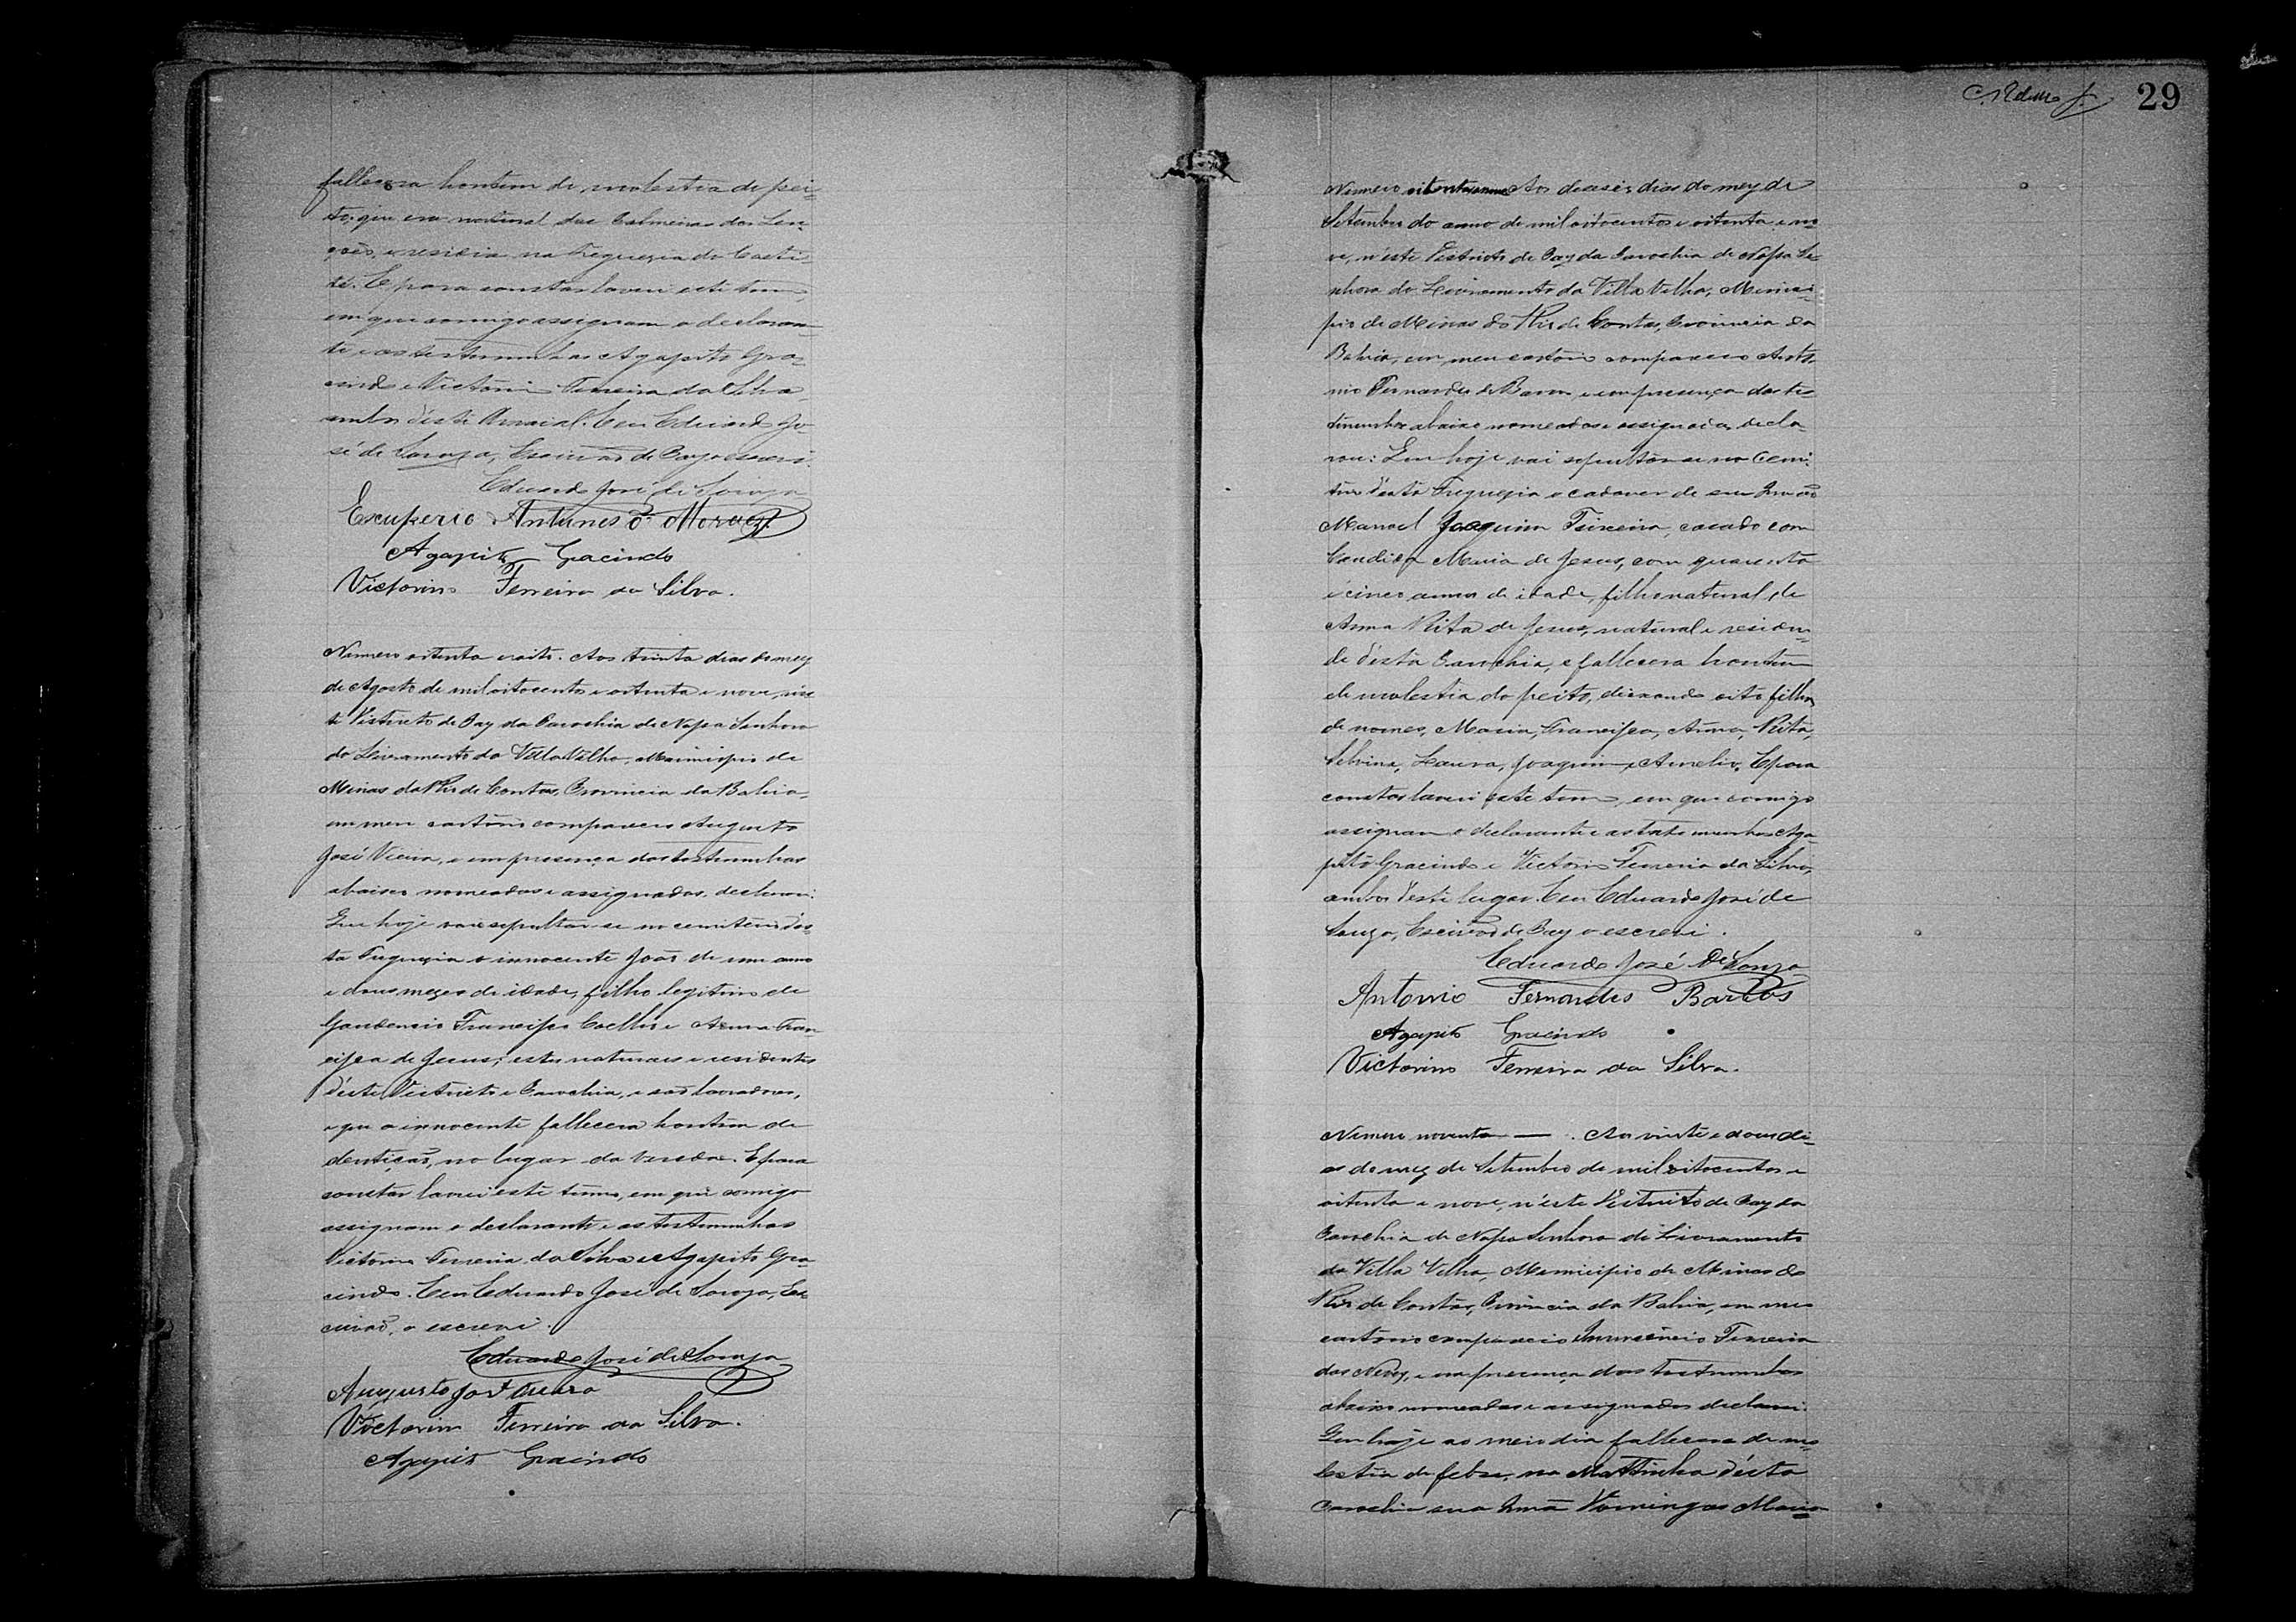 fallecera hontem de molestia de pei-
to, que era natural das Palmeiras dos Len-
çoes, e residia na Freguezia do Caeti-
té. E para constar lavrei este termo,
em que comigo assignam o declaran-
te e as testemunhas Agapito Gra-
cindo e Victorino Ferreira da Silva,
ambos d'este Arraial. Eu Eduardo Jo-
sé de Souza, Escrivão de Paz o escrevi.
Eduardo José de Souza
Exuperio Antunes de Moraes
Agapito Gracindo
Victorino Ferreira da Silva.
Numero oitenta e oito. Aos trinta dias do mez
de Agosto de mil oitocentos e oitenta e nove, nes-
te Districto de Paz da Parochia de Nossa Senhora
do Livramento da Villa Velha, Municipio de
Minas do Rio de Contas, Provincia da Bahia,
em meu cartorio compareceo Augusto
José Vieira, e em presença das testemunhas
abaixo nomeadas e assignadas, declarou:
Que hoje vai sepultar-se no cemiterio d'es-
ta Freguezia o innocente João de um anno
e dous mezes de idade, filho legitimo de
Gaudencio Francisco Coelho e Anna Fran-
cisca de Jesus; estes naturaes e residentes
d'este Districto e Parochia, e são lavradores,
e que o innocente fallecera hontem de
dentição, no lugar da Vereda. E para
constar lavrei este termo, em que comigo
assignam o declarante e as testemunhas
Victorino Ferreira da Silva e Agapito Gra-
cindo. Eu Eduardo José de Souza, Es-
crivão, o escrevi.
Eduardo José de Souza
Augusto José Vieira
Victorino Ferreira da Silva.
Agapito Gracindo
29
Numero oitenta e nove Aos deseseis dias do mez de
Setembro do anno de mil oitocentos e oitenta e no-
ve, n'este Districto de Paz da Parochia de Nossa Se-
nhora do Livramento da Villa Velha, Munici-
pio de Minas do Rio de Contas, Provincia da
Bahia, em meu cartorio compareceo Anto-
nio Fernandes de Barros e em presença das tes-
temunhas abaixo nomeadas e assignadas, decla-
rou: Que hoje vai sepultar-se no Cemi-
terio d'esta Freguezia o cadaver de seu Irmão
Manoel Joaquim Teixeira, casado com
Candida Maria de Jesus, com quarenta
e cinco annos de idade, filho natural de
Anna Rita de Jesus, natural e residen-
te d'esta Parochia, e fallecera hontem
de molestia do peito, deixando oito filhos
de nomes, Maria, Francisca, Anna, Rita,
Silvina, Laura, Joaquim e Aurelio. E para
constar lavrei este termo, em que comigo
assignam o declarante e as testemunhas Aga-
pito Gracindo e Victorino Ferreira da Silva,
ambos d'este lugar. Eu Eduardo José de
Souza, Escrivão de Paz o escrevi.
Eduardo José de Souza
Antonio Fernandes Barros
Agapito Gracindo
Victorino Ferreira da Silva.
Numero noventa — . Aos vinte e dous di-
as do mez de Setembro de mil oitocentos e
oitenta e nove, n'este Districto de Paz da
Parochia de Nossa Senhora do Livramento
da Villa Velha, Municipio de Minas do
Rio de Contas, Provincia da Bahia, em meu
cartorio compareceo Innocencio Ferreira
das Neves, e em presença das testemunhas
abaixo nomeadas e assignadas declarou:
Que hoje ao meio dia fallecera de mo-
lestia de febre, na Mattinha d'esta
Parochia sua Irmã Domingas Maria